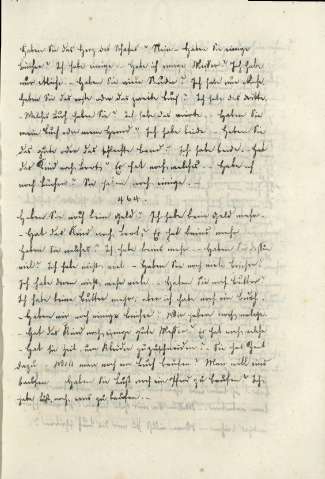 Haben Sie das Herz des Schafes? Nein. – Haben Sie einige
Bücher? Ich habe einige. – Habe ich einige Messer? Ich habe
nur etliche. – Haben Sie viele Stühle? Ich habe nur
Haben Sie das erste oder das zweite Buch? Ich habe das dritte.
– Welches Buch haben Sie? Ich habe das vierte. – Haben Sie
mein Buch oder mein Hemd? Ich habe beide. – Haben Sie
das gute oder das schlechte Hemd? Ich habe beide. – Hat
das Kind noch Brot? Es hat noch welches. – Habe ich
noch Bücher? Sie haben noch einige. –
464.
Haben Sie noch kein Geld? Ich habe kein Geld mehr.
– Hat das Kind noch Brot? Es hat keines mehr.
Haben Sie welches? Ich habe keines mehr. – Haben Sie
viel? Ich habe nicht viel. – Haben Sie noch viele Bücher?
Ich habe deren nicht mehr viele. – Haben Sie noch Butter?
Ich habe keine Butter mehr, aber ich habe noch ein Buch.
– Haben wir noch einige Bücher? Wir haben noch einige.
– Hat das Kind noch einige gute Messer? Es hat noch etliche.
– Hat sie Zeit um Kleider zuzuschneiden? – Sie hat Zeit
dazu. – Will man noch ein Buch kaufen? Man will eins
kaufen. – Haben Sie Lust noch ein Pferd zu kaufen? Ich
habe Lust noch eins zu kaufen. –